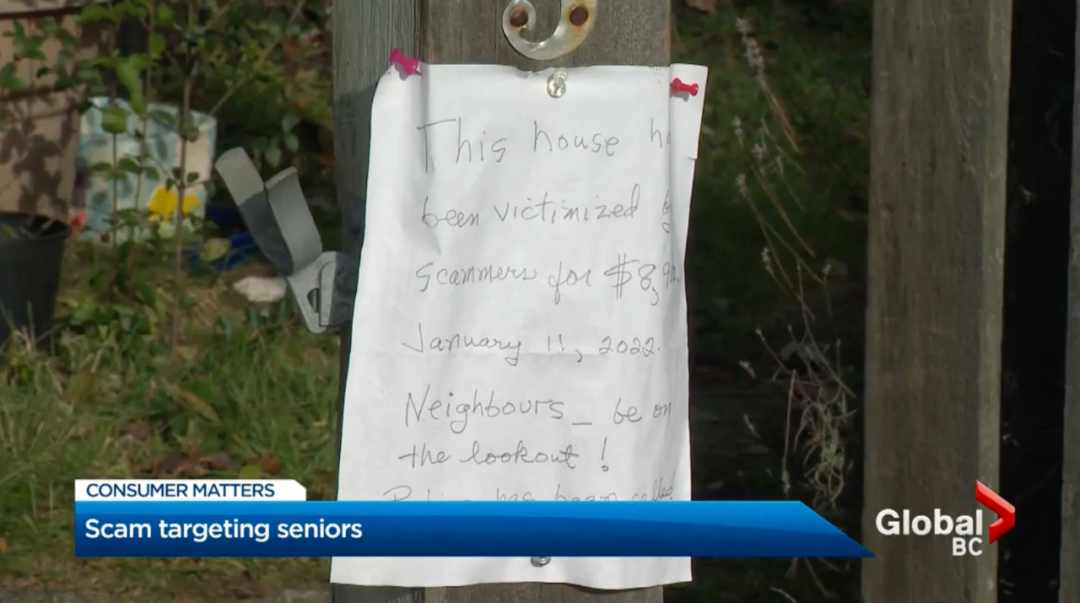 This house
been victimized
scammers for $8,9
January 11, 2022.
Neighbours_ be on
the lookout!
has been called
CONSUMER MATTERS
Scam targeting seniors
Global
BC